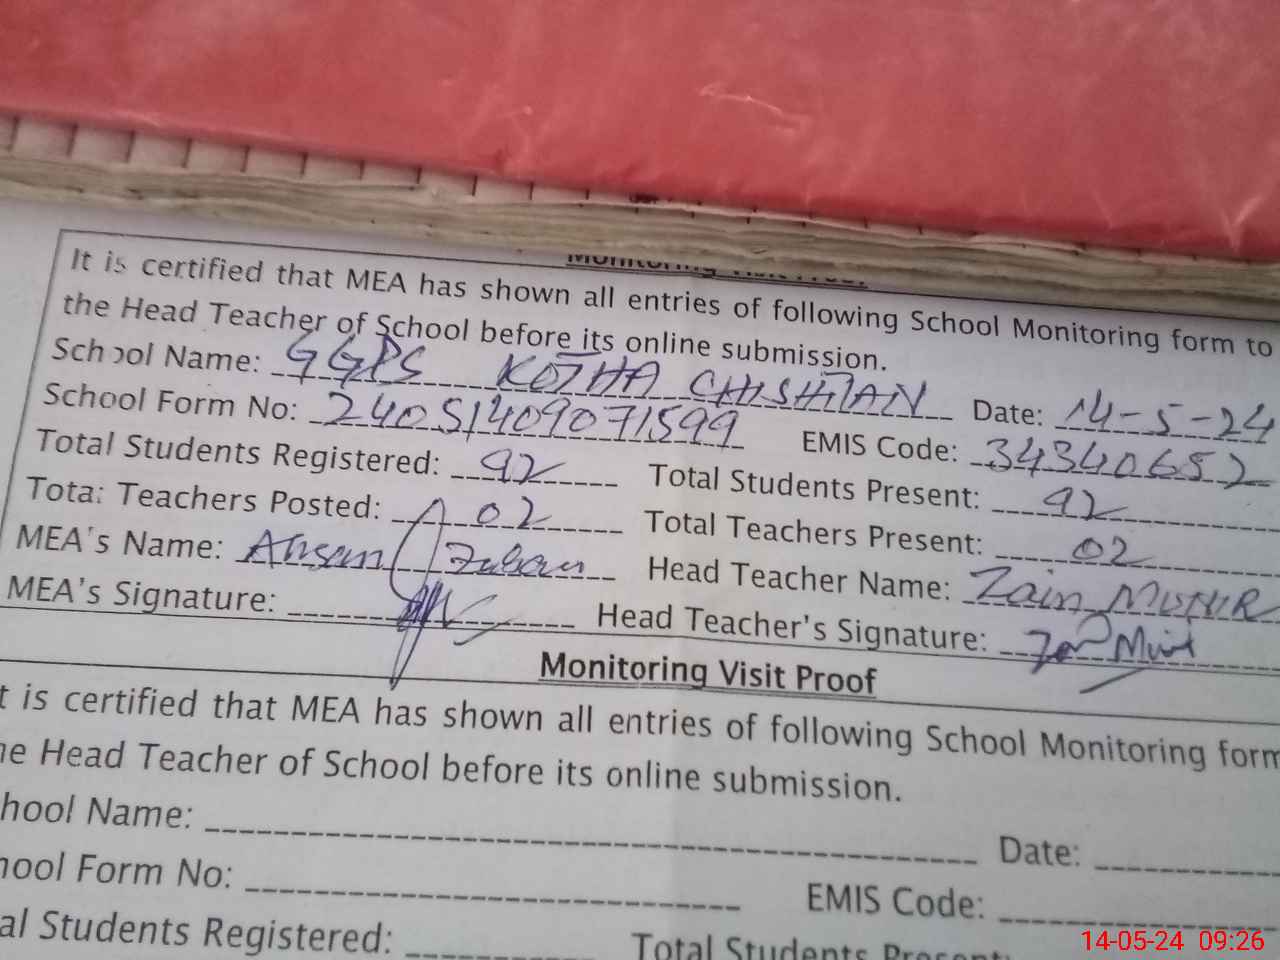 Monitoring Visit Proof
It is certified that MEA has shown all entries of following School Monitoring form to
the Head Teacher of School before its online submission.
School Name: GGPS KOTHA CHISHTIAN Date: 14-5-24
School Form No: 24051409071599 EMIS Code: 34340652
Total Students Registered: 92 Total Students Present: 92
Total Teachers Posted: 02 Total Teachers Present: 02
MEA's Name: Ahsan Head Teacher Name: Zain MUNIR
MEA's Signature: Head Teacher's Signature:
Monitoring Visit Proof
t is certified that MEA has shown all entries of following School Monitoring form
he Head Teacher of School before its online submission.
hool Name: Date:
hool Form No: EMIS Code:
al Students Registered: Total Students Present:
14-05-24 09:26